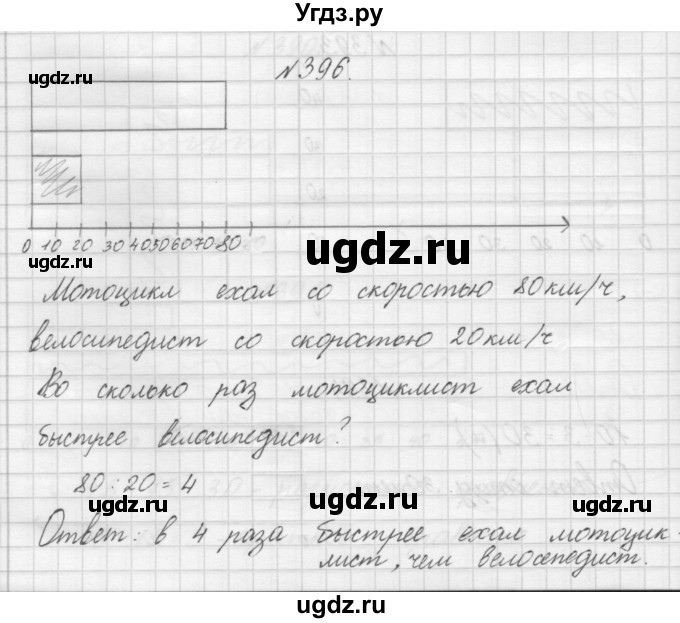 Угдз.ру
№396.
ugdz.ru ugdz.ru
0 10 20 30 40 50 60 70 80
ugdz.ru ugdz.ru ugdz.ru
Мотоцикл ехал со скоростью 80км/ч,
велосипедист со скоростью 20км/ч
Во сколько раз мотоциклист ехал
быстрее велосипедист?
80:20=4
ugdz.ru ugdz.ru ugdz.ru
Ответ: в 4 раза быстрее ехал мотоцик-
лист, чем велосепедист.
ugdz.ru